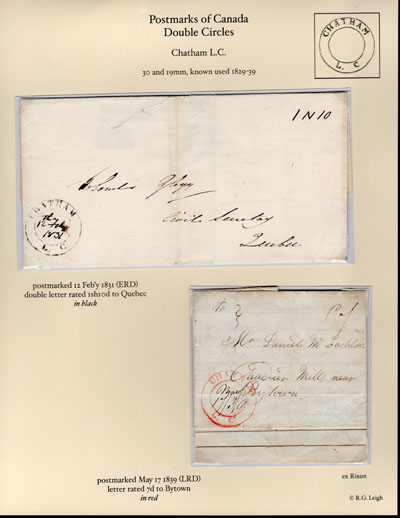 Postmarks of Canada
Double Circles
Chatham L.C.
30 and 19mm, known used 1829-39
CHATHAM
L. C
1 N 10
Civil Secretary
Quebec
CHATHAM
12 Feby
1831
L. C
postmarked 12 Feb'y 1831 (ERD)
double letter rated 1sh10d to Quebec
in black
to
Mr Daniel Mc Lachlin
Mills near
Bytown
CHATHAM
L. C
postmarked May 17 1839 (LRD)
letter rated 7d to Bytown
in red
ex Rixon
© R.G. Leigh